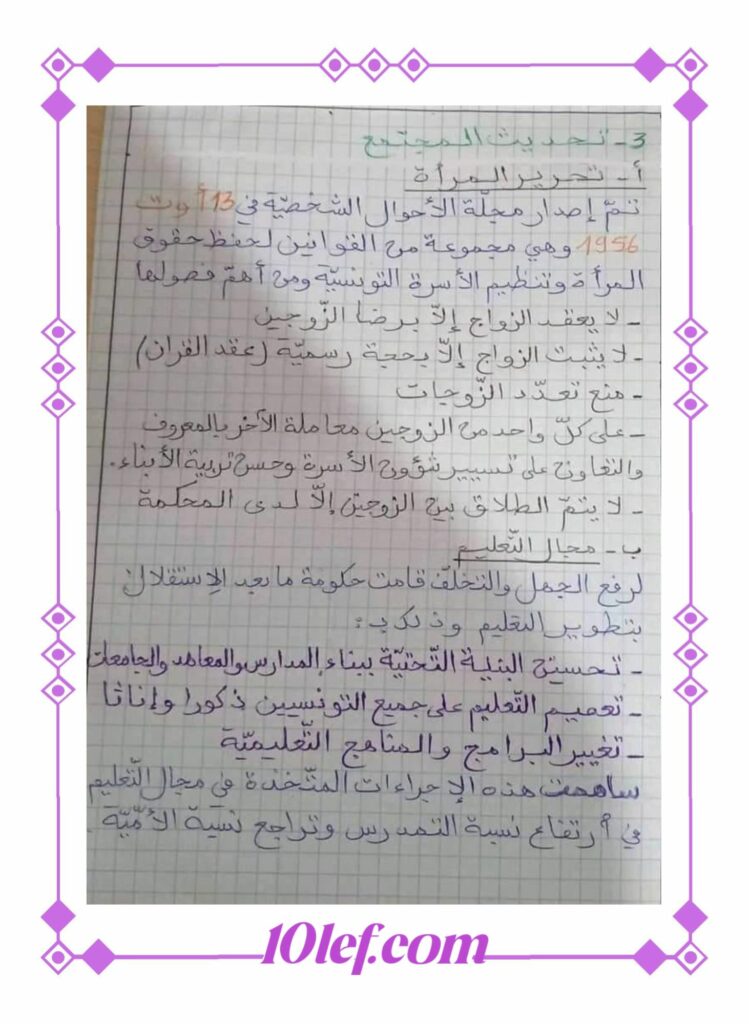 3 - تحديث المجتمع
أ - تحرير المرأة
تمّ إصدار مجلّة الأحوال الشخصيّة في 13 أوت
1956 وهي مجموعة من القوانين لحفظ حقوق
المرأة وتنظيم الأسرة التونسيّة ومن أهمّ فصولها
- لا يعقد الزواج إلاّ برضا الزّوجين
- لا يثبت الزواج إلاّ بحجة رسميّة (عقد القران)
- منع تعدّد الزّوجات
- على كلّ واحد من الزوجين معاملة الآخر بالمعروف
والتعاون على تسيير شؤون الأسرة وحسن تربية الأبناء.
- لا يتمّ الطلاق بين الزوجين إلاّ لدى المحكمة
ب - مجال التّعليم
لرفع الجهل والتخلّف قامت حكومة ما بعد الإستقلال
بتطوير التعليم وذلك ب:
- تحسين البنية التّحتيّة ببناء المدارس والمعاهد والجامعات
- تعميم التّعليم على جميع التونسيين ذكورا وإناثا
- تغيير البرامج والمناهج التّعليميّة
ساهمت هذه الإجراءات المتّخذة في مجال التّعليم
في أرتفاع نسبة التمدرس وتراجع نسبة الأمّيّة.
10lef.com